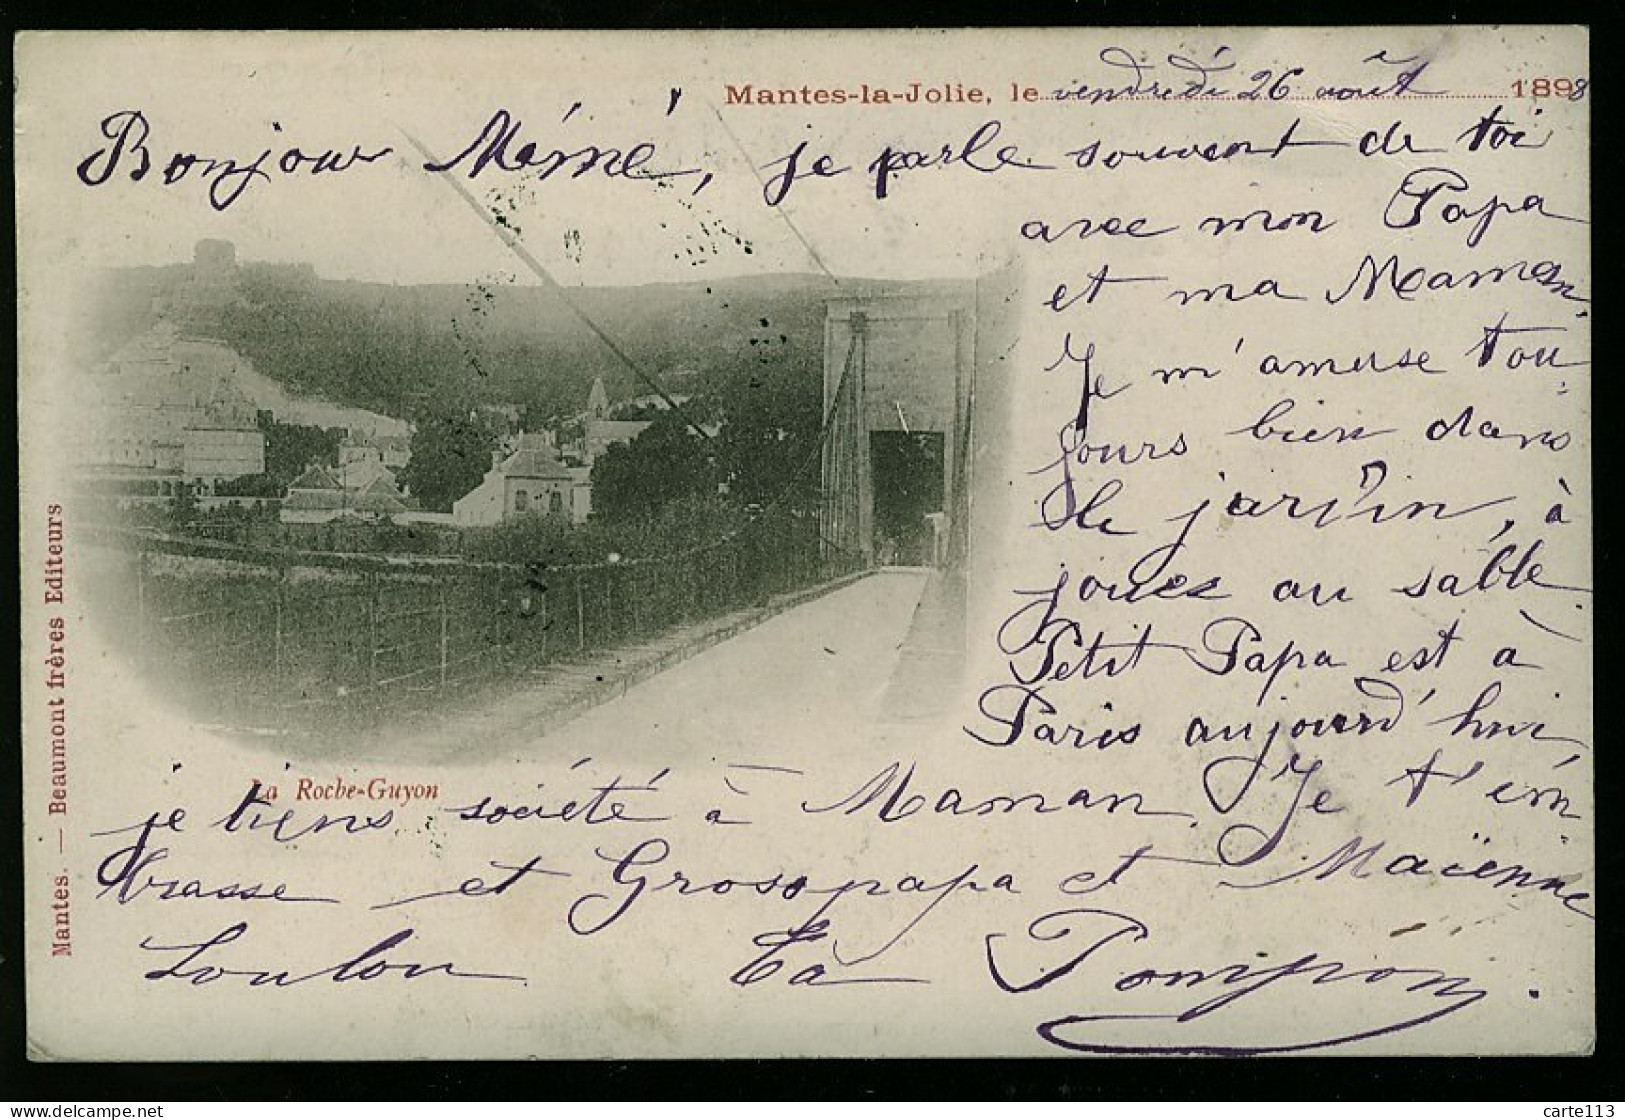 Mantes-la-Jolie, le vendredi 26 août 1898
Bonjour Mémé, je parle souvent de toi
avec mon Papa
et ma Maman,
Je m'amuse tou-
jours bien dans
le jardin, à
jouer au sable.
Petit Papa est à
Paris aujourd'hui,
La Roche-Guyon
je tiens société à Maman. Je t'em-
brasse et Grospapa et Maïenne
Loulou Ta Pompon.
Mantes. — Beaumont frères Editeurs
delcampe.net
carte113